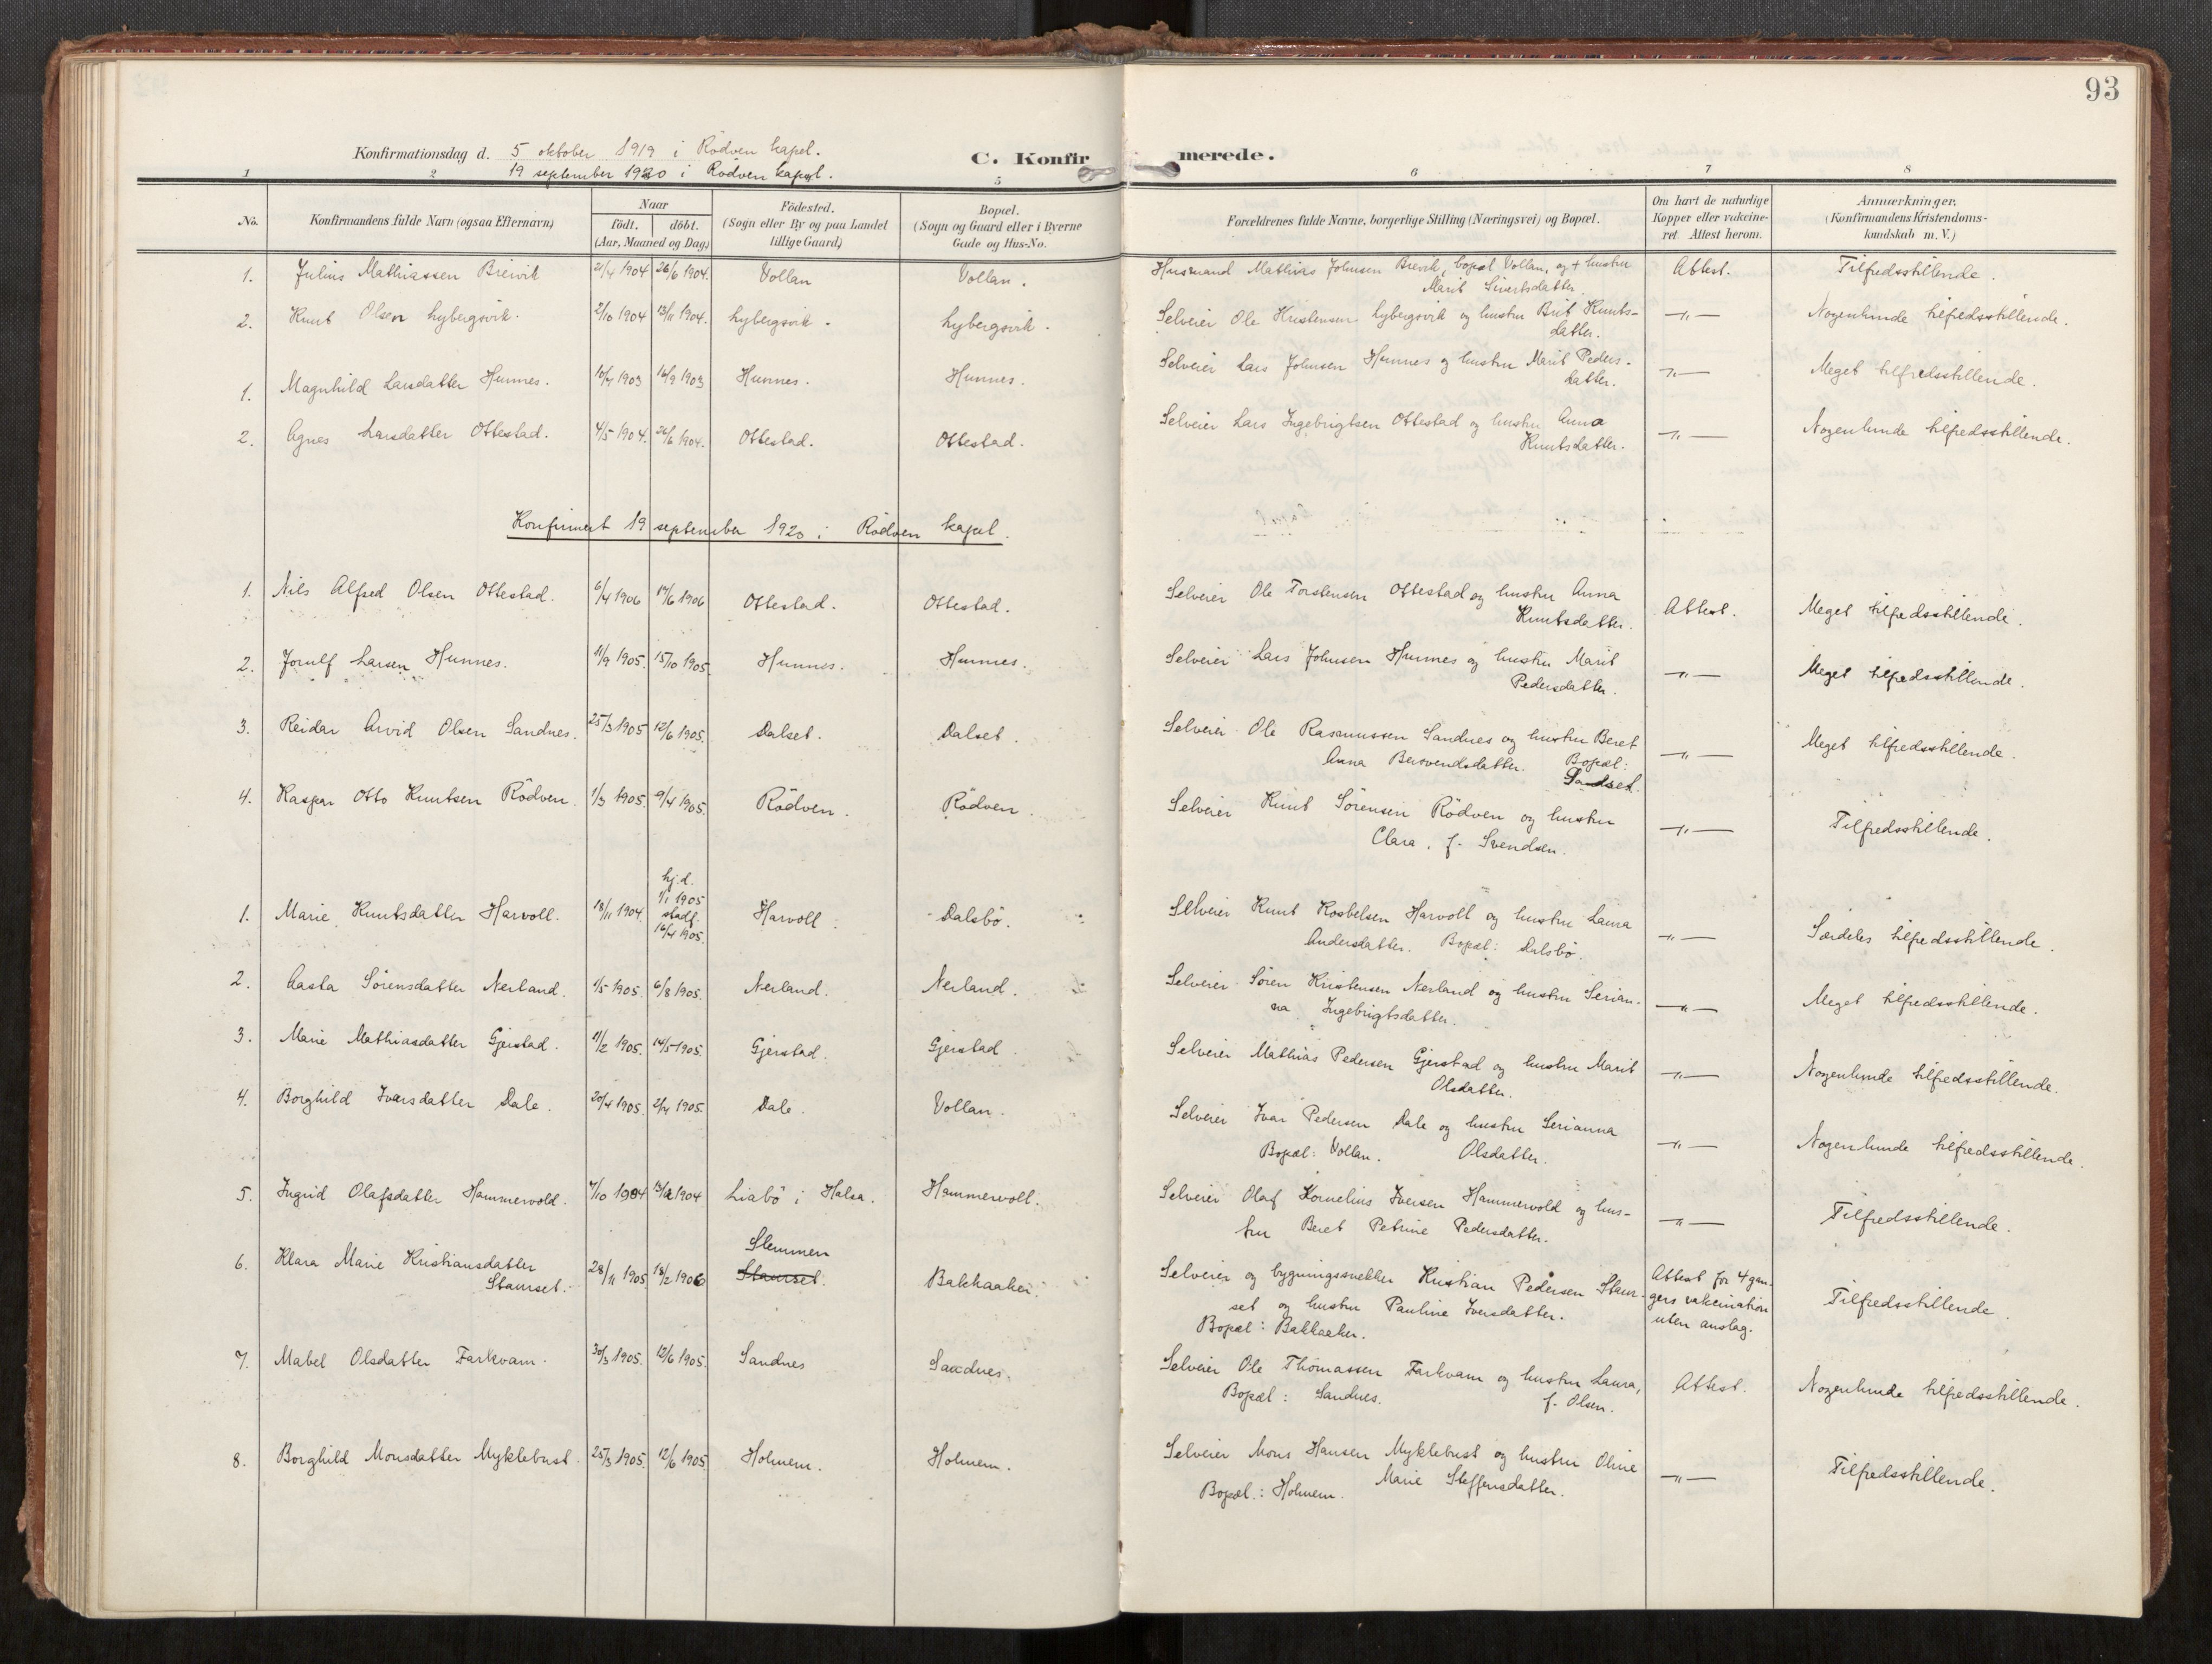 93
Konfirmationsdag d. 5 oktober 1919 i Rödven kapel.
19 september 1920 i Rödven kapel.
C. Konfirmerede.
1 2 5 6 7 8
No. Konfirmandens fulde Navn (ogsaa Efternavn) Naar födt. döbt. (Aar, Maaned og Dag) Födested. (Sogn eller By og paa Landet tillige Gaard) Bopæl. (Sogn og Gaard eller i Byerne Gade og Hus-No. Forældrenes fulde Navne, borgerlige Stilling (Næringsvei) og Bopæl. Om havt de naturlige Kopper eller vakcineret. Attest herom. Anmærkninger. (Konfirmandens Kristendomskundskab m. V.)
1. Julius Mathiassen Breivik 21/4 1904 26/6 1904. Vollan Vollan. Husmand Mathias Johnsen Brevik, bopæl Vollan, og + hustru Attest. Tilfredsstillende.
Marit Sivertsdatter.
2. Knut Olsen Lybergsvik. 2/10 1904 13/11 1904. Lybergsvik. Lybergsvik. Selveier Ole Kristensen Lybergsvik og hustru Brit Knuts- —"— Nogenlunde tilfredsstillende.
datter.
1. Magnhild Larsdatter Hunnes. 10/7 1903 16/9 1903 Hunnes. Hunnes. Selveier Lars Johnsen Hunnes og hustru Marit Peders- —"— Meget tilfredsstillende.
datter.
2. Agnes Larsdatter Ottestad. 4/5 1904. 26/6 1904. Ottestad. Ottestad. Selveier Lars Ingebrigtsen Ottestad og hustru Anna —"— Nogenlunde tilfredsstillende.
Knutsdatter.
Konfirmert 19 september 1920 i Rödven kapel.
1. Nils Alfred Olsen Ottestad. 6/4 1906 17/6 1906 Ottestad. Ottestad. Selveier Ole Torstensen Ottestad og hustru Anna Attest. Meget tilfredsstillende.
Knutsdatter.
2. Jorulf Larsen Hunnes. 11/9 1905. 15/10 1905. Hunnes. Hunnes. Selveier Lars Johnsen Hunnes og hustru Marit —"— Meget tilfredsstillende.
Pedersdatter.
3. Reidar Arvid Olsen Sandnes. 25/3 1905 12/6 1905. Dalset. Dalset. Selveier Ole Rasmussen Sandnes og hustru Beret —"— Meget tilfredsstillende.
Anna Bersvendsdatter. Bopæl:
4. Kaspar Otto Knutsen Rödven. 1/3 1905. 9/4 1905. Rödven. Rödven. Selveier Knut Sörensen Rödven og hustru —"— Tilfredsstillende.
Clara, f. Svendsen.
1. Marie Knutsdatter Harvoll. 18/11 1904. hj.d. 1/1 1905 stadf. 16/4 1905. Harvoll. Dalsbö. Selveier Knut Kosbelsen Harvoll og hustru Laura —"— Særdeles tilfredsstillende.
Andersdatter. Bopæl: Dalsbö.
2. Aasta Sörensdatter Nerland. 1/5 1905. 6/8 1905. Nerland. Nerland. Selveier Sören Kristensen Nerland og hustru Serian- —"— Meget tilfredsstillende.
na Ingebrigtsdatter.
3. Marie Mathiasdatter Gjerstad. 11/2 1905. 14/5 1905. Gjerstad. Gjerstad. Selveier Mathias Pedersen Gjerstad og hustru Marit —"— Nogenlunde tilfredsstillende.
Olsdatter.
4. Borghild Ivarsdatter Dale. 20/4 1905. 2/7 1905. Dale. Vollan. Selveier Ivar Pedersen Dale og hustru Serianna —"— Nogenlunde tilfredsstillende.
Bopæl: Vollan. Olsdatter.
5. Ingrid Olafsdatter Hammervold. 7/10 1904 1904 Liabö i Halsa. Hammervoll. Selveier Olaf Kornelius Iversen Hammervold og hus- —"— Tilfredsstillende.
tru Beret Petrine Pedersdatter.
6. Klara Marie Kristiansdatter Staurset. 28/11 1905 18/2 1906 Stemmen Staurset. Bakkaaker. Selveier og bygningssnekker Kristian Pedersen Staur- Attest for 4 gan- Tilfredsstillende
set og hustru Pauline Iversdatter. gers vakcination
Bopæl: Bakkaaker. uten anslag.
7. Mabel Olsdatter Farkvam. 30/3 1905. 12/6 1905. Sandnes Sandnes. Selveier Ole Thomassen Farkvam og hustru Laura, Attest. Nogenlunde tilfredsstillende.
Bopæl: Sandnes. f. Olsen.
8. Borghild Monsdatter Myklebust. 25/3 1905. 12/6 1905. Holmem. Holmem. Selveier Mons Hansen Myklebust og hustru Oline —"— Tilfredsstillende.
Bopæl: Holmem. Marie Steffensdatter.